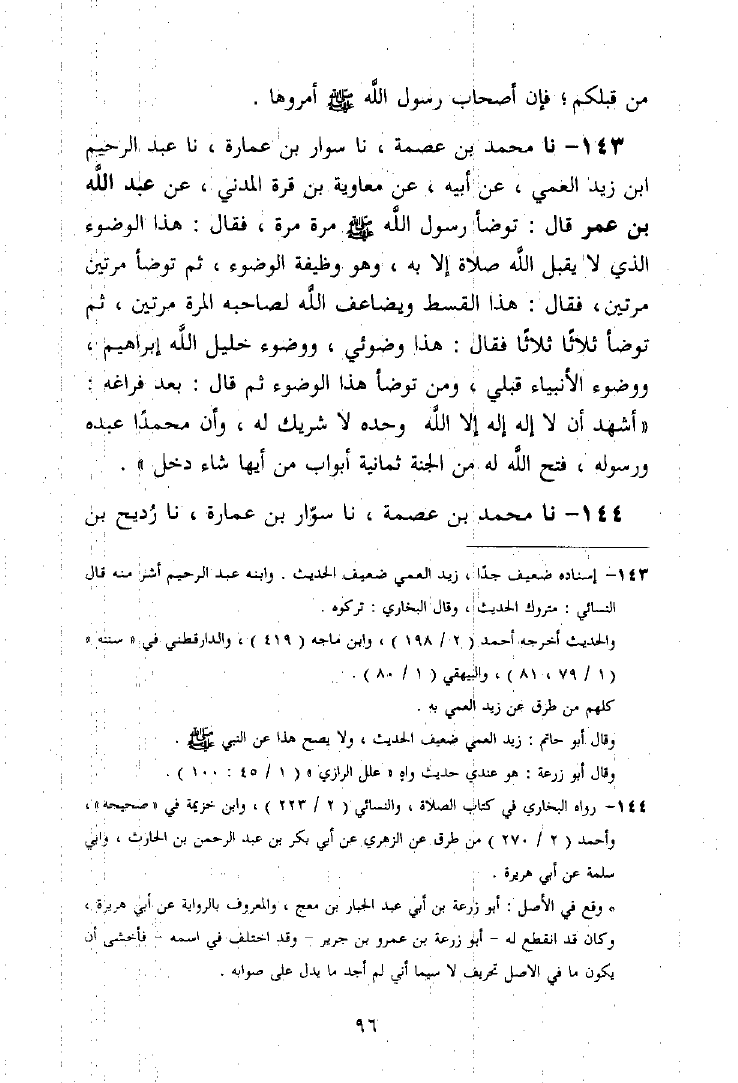 من قبلكم ؛ فإن أصحاب رسول اللَّه ﷺ أمروها .
١٤٣– نا محمد بن عصمة ، نا سوار بن عمارة ، نا عبد الرحيم
ابن زيد العمي ، عن أبيه ، عن معاوية بن قرة المدني ، عن عبد اللَّه
بن عمر قال : توضأ رسول اللَّه ﷺ مرة مرة ، فقال : هذا الوضوء
الذي لا يقبل اللَّه صلاة إلا به ، وهو وظيفة الوضوء ، ثم توضأ مرتين
مرتين، فقال : هذا القسط ويضاعف اللَّه لصاحبه المرة مرتين ، ثم
توضأ ثلاثًا ثلاثًا فقال : هذا وضوئي ، ووضوء خليل اللَّه إبراهيم ،
ووضوء الأنبياء قبلي ، ومن توضأ هذا الوضوء ثم قال : بعد فراغه :
« أشهد أن لا إله إله إلا اللَّه وحده لا شريك له ، وأن محمدًا عبده
ورسوله ، فتح اللَّه له من الجنة ثمانية أبواب من أيها شاء دخل » .
١٤٤– نا محمد بن عصمة ، نا سوّار بن عمارة ، نا رُديح بن
١٤٣– إسناده ضعيف جدًا ، زيد العمي ضعيف الحديث . وابنه عبد الرحيم أشر منه قال
النسائي : متروك الحديث ، وقال البخاري : تركوه .
والحديث أخرجه أحمد ( ٢ / ١٩٨ ) ، وابن ماجه ( ٤١٩ ) ، والدارقطني في « سننه »
( ١ / ٧٩ ، ٨١ ) ، والبيهقي ( ١ / ٨٠ ) .
كلهم من طرق عن زيد العمي به .
وقال أبو حاتم : زيد العمي ضعيف الحديث ، ولا يصح هذا عن النبي ﷺ .
وقال أبو زرعة : هو عندي حديث واهٍ « علل الرازي » ( ١ / ٤٥ : ١٠٠ ) .
١٤٤– رواه البخاري في كتاب الصلاة ، والنسائي ( ٢ / ٢٢٣ ) ، وابن خزيمة في « صحيحه » ،
وأحمد ( ٢ / ٢٧٠ ) من طرق عن الزهري عن أبي بكر بن عبد الرحمن بن الحارث ، وأبي
سلمة عن أبي هريرة .
* وقع في الأصل : أبو زرعة بن أبي عبد الجبار بن معج ، والمعروف بالرواية عن أبي هريرة ،
وكان قد انقطع له – أبو زرعة بن عمرو بن جرير – وقد اختلف في اسمه – فأخشى أن
يكون ما في الاصل تحريف لا سيما أني لم أجد ما يدل على صوابه .
٩٦